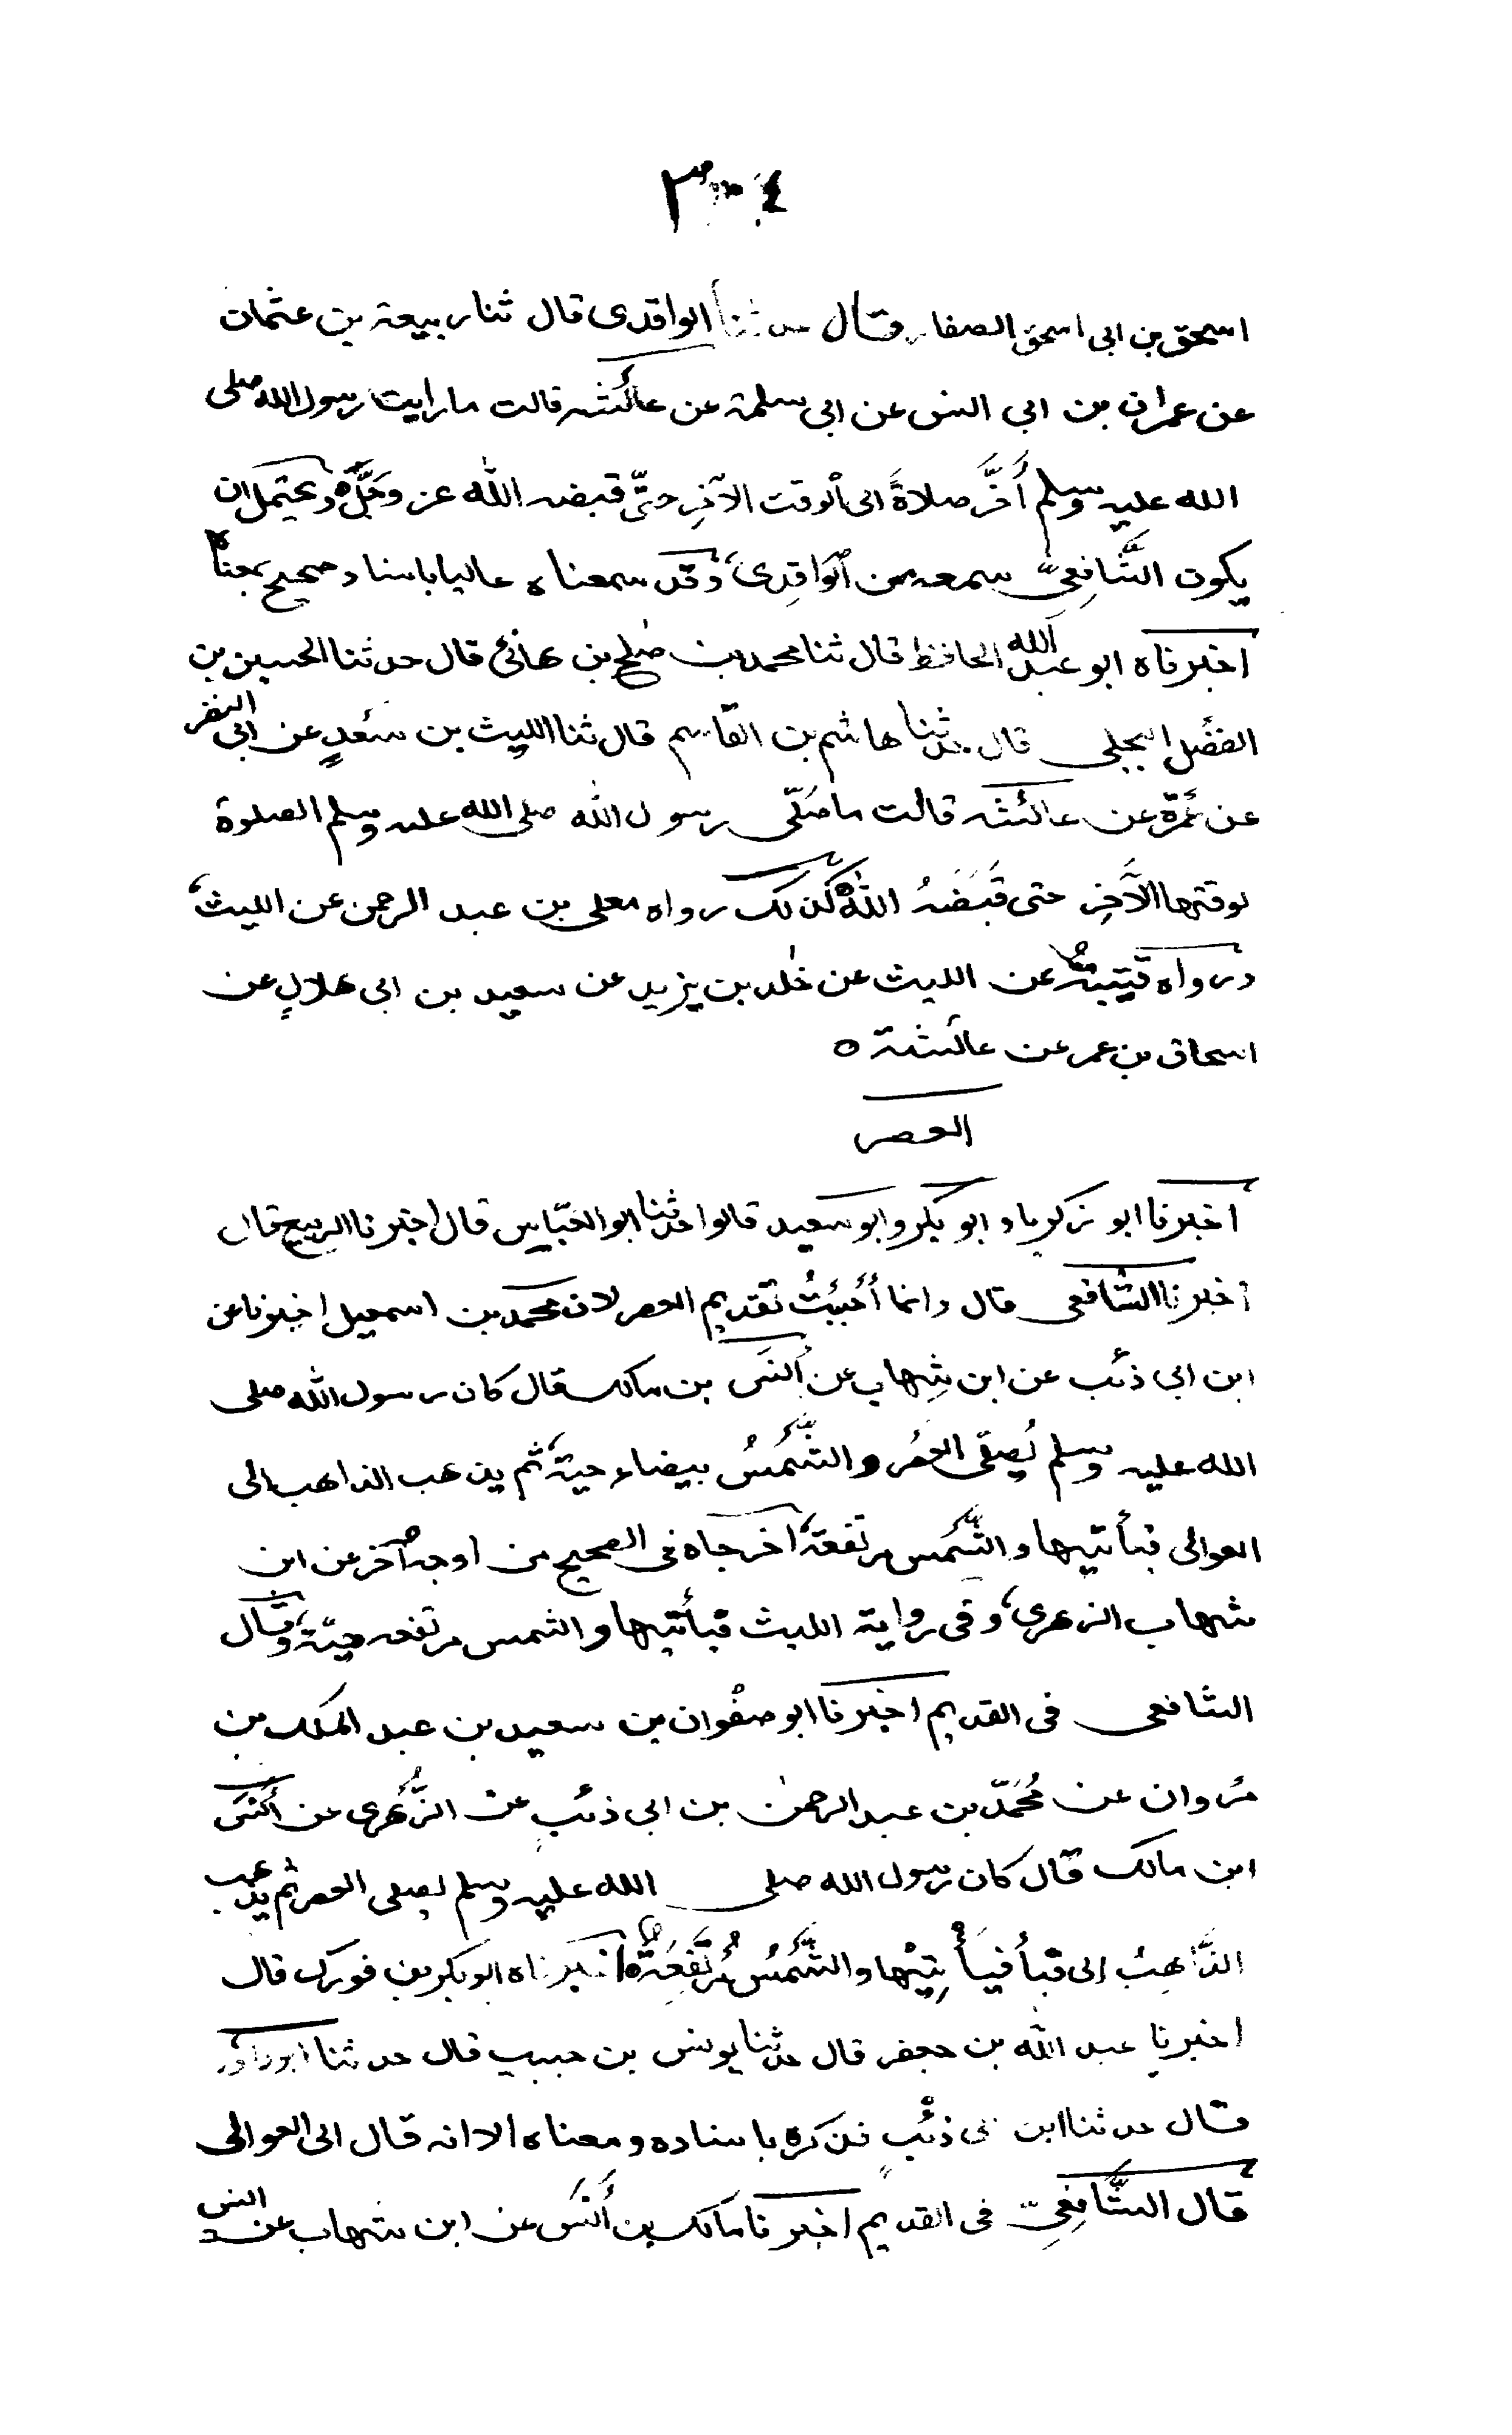 اسحق بن ابى اسحق الصفار قال حدثنا الواقدى قال ثنا ربيعة بن عثمان
عن عمران بن ابي انس عن ابى سلمة عن عائشه قالت ما رايت رسول الله صلى
الله عليه وسلم أخَّر صلاةً الى ألوقت الآخِر حتّى قبضه الله عز وجَلَّ ه ويحتمل ان
يكون الشَّافِعىّ سمعه من ألوَاقِدى، وقد سمعناه عاليا باسناد صحيح بمعناه
اخبرناه ابو عبد الله الحافظ قال ثنا محمد بن صلح بن هانئ قال حدثنا الحسين بن
الفضل البجلى قال حدثنا هاشم بن القاسم قال ثنا الليث بن سَعدٍ عن ابى النضر
عن عَمرَة عن عائشه قالت ما صَلّى رسول الله صلى الله عليه وسلم الصلوة
لوقتها الآخِر حتى قَبَضَهُ اللهُ ه كذلك رواه معلى بن عبد الرحمن عن الليث،
ورواه قتيبةُ عن الليث عن خلد بن يزيد عن سعيد بن ابى هلالٍ عن
اسحاق بن عمر عن عائشة ه
العصر
اخبرنا ابو زكريا و ابو بكر وابو سعيد قالوا حدثنا ابو العَبّاس قال اخبرنا الربيع قال
اخبرنا الشافعى قال وانما أَحْبَبْتُ تقديم العصر لان محمد بن اسمعيل اخبرنا عن
ابن ابى ذئب عن ابن شِهاب عن أنس بن مالك قال كان رسول الله صلى
الله عليه وسلم يُصلّى العصر والشَّمسُ بيضاء حية، ثم يذهب الذاهب الى
العوالى فيأتيها والشَّمس مرتفعة، اخرجاه فى الصحيح من اوجه أخر عن ابن
شهاب الزهرى، وفى رواية الليث فيأتيها والشمس مرتفعه حيّة، وقال
الشافعى فى القديم اخبرنا ابو صفْوان بن سعيد بن عبد الملك بن
مَروان عن مُحَمّد بن عبد الرحمن بن ابى ذئب عن الزُّهرى عن أنس
ابن مالك قال كان رسول الله صلى الله عليه وسلم يصلى العصر ثم يذهب
الذَّاهِبُ الى قبأ فيأتِيْها والشَّمسُ مُرْتَفِعَةٌ ه اخبرناه ابو بكر بن فورك قال
اخبرنا عبد الله بن جعفر قال حدثنا يونس بن حبيب قال حدثنا ابو داود
قال حدثنا ابن ابى ذئب فذكره باسناده ومعناه الا انه قال الى العوالى
قال الشَّافِعىّ فى القديم اخبرنا مالك بن أنَس عن ابن شهاب عن انس